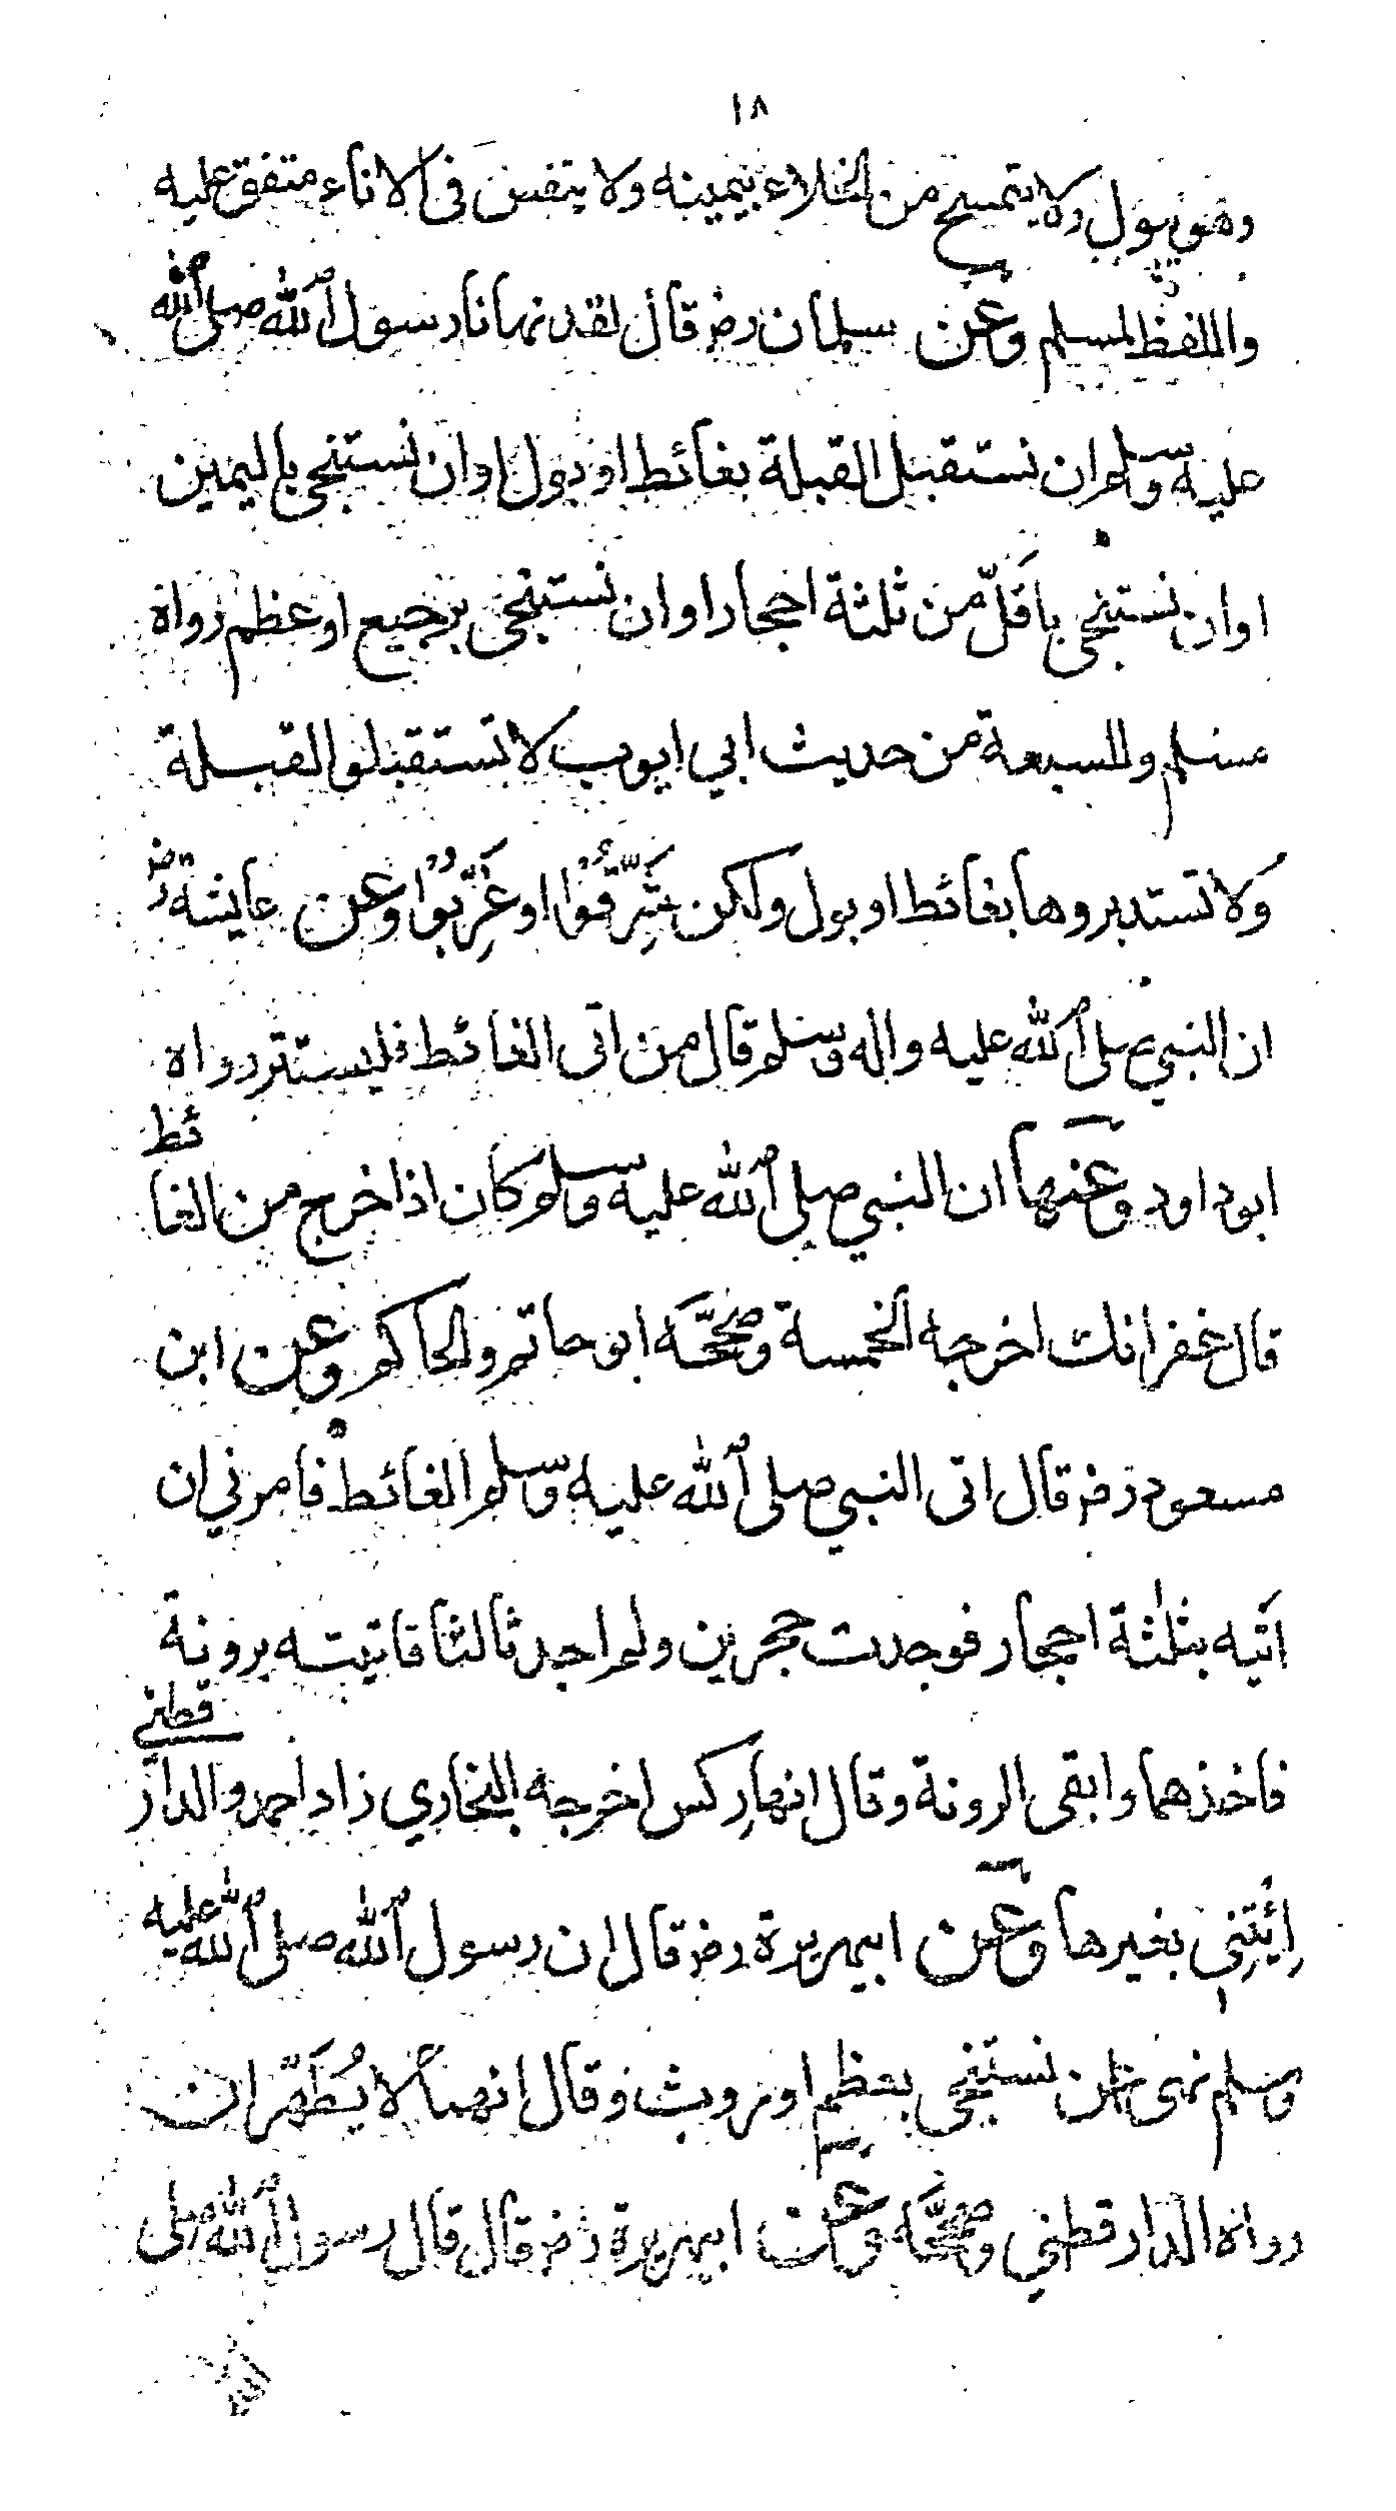 ١٨
وهو يبول ولا يتمسح من الخلاء بيمينه ولا يتنفس في الاناء متفق عليه
واللفظ لمسلم وعن سلمان رضر قال لقد نهانا رسول الله صلى الله
عليه وسلم ان نستقبل القبلة بغائط او بول او ان نستنجي باليمين
او ان نستنجي باقلّ من ثلثة احجار او ان نستنجي برجيع او عظم رواه
مسلم وللسبعة من حديث ابي ايوب لا تستقبلوا القبلة
ولا تستدبروها بغائط او بول ولكن شَرِّقُوْا او غَرِّبُوْا وعن عايشة رضر
ان النبي صلى الله عليه واله وسلم قال من اتى الغائط فليستتر رواه
ابو داود وعنها ان النبي صلى الله عليه وسلم كان اذا خرج من الغائط
قال غفرانك اخرجه الخمسة وصححّه ابو حاتم والحاكم وعن ابن
مسعود رضر قال اتى النبي صلى الله عليه وسلم الغائط فامرني ان
اتيه بثلثة احجار فوجدت حجرين ولم اجد ثالثا فاتيته بروثة
فاخذهما وابقى الروثة وقال انها رِكس اخرجه البخاري زاد احمد والدارقطني
اِئْتِنِي بغيرها وعن ابيهريرة رضر قال ان رسول الله صلى الله عليه
وسلم نهى ان نستنجي بعظم او روث وقال انهما لا يُطَهِّران
رواه الدارقطني وصححّه وعن ابيهريرة رضر قال قال رسول الله صلى